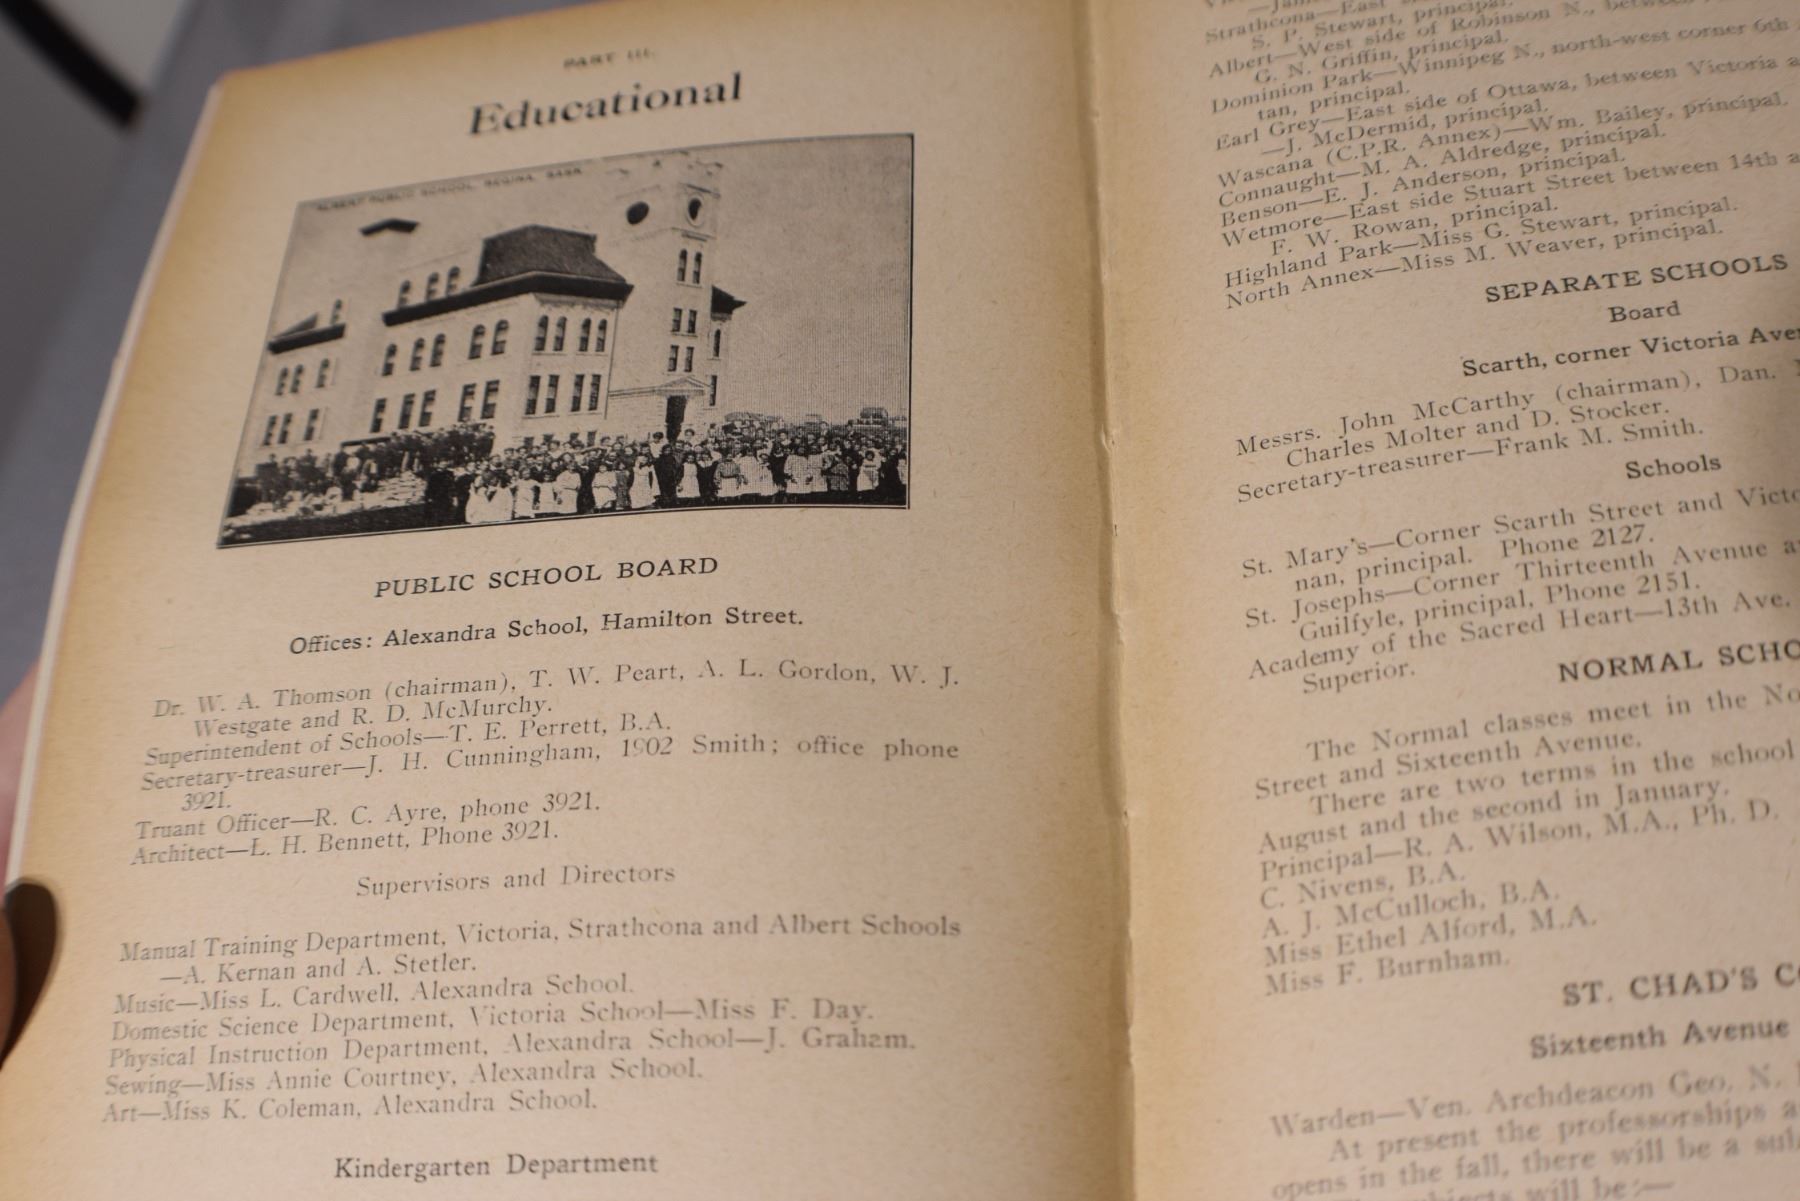 PART III.
Educational
ALBERT PUBLIC SCHOOL, REGINA, SASK.
PUBLIC SCHOOL BOARD
Offices: Alexandra School, Hamilton Street.
Dr. W. A. Thomson (chairman), T. W. Peart, A. L. Gordon, W. J.
Westgate and R. D. McMurchy.
Superintendent of Schools—T. E. Perrett, B.A.
Secretary-treasurer—J. H. Cunningham, 1902 Smith; office phone
3921.
Truant Officer—R. C. Ayre, phone 3921.
Architect—L. H. Bennett, Phone 3921.
Supervisors and Directors
Manual Training Department, Victoria, Strathcona and Albert Schools
—A. Kernan and A. Stetler.
Music—Miss L. Cardwell, Alexandra School.
Domestic Science Department, Victoria School—Miss F. Day.
Physical Instruction Department, Alexandra School—J. Graham.
Sewing—Miss Annie Courtney, Alexandra School.
Art—Miss K. Coleman, Alexandra School.
Kindergarten Department
Strathcona—East
S. P. Stewart, principal.
Albert—West side of Robinson N., between
G. N. Griffin, principal.
Dominion Park—Winnipeg N., north-west corner 6th
tan, principal.
Earl Grey—East side of Ottawa, between Victoria a
—J. McDermid, principal.
Wascana (C.P.R. Annex)—Wm. Bailey, principal.
Connaught—M. A. Aldredge, principal.
Benson—E. J. Anderson, principal.
Wetmore—East side Stuart Street between 14th a
F. W. Rowan, principal.
Highland Park—Miss G. Stewart, principal.
North Annex—Miss M. Weaver, principal.
SEPARATE SCHOOLS
Board
Scarth, corner Victoria Aven
Messrs. John McCarthy (chairman), Dan.
Charles Molter and D. Stocker.
Secretary-treasurer—Frank M. Smith.
Schools
St. Mary's—Corner Scarth Street and Victo
nan, principal. Phone 2127.
St. Josephs—Corner Thirteenth Avenue a
Guilfyle, principal, Phone 2151.
Academy of the Sacred Heart—13th Ave.
Superior.
NORMAL SCHO
The Normal classes meet in the No
Street and Sixteenth Avenue.
There are two terms in the school
August and the second in January.
Principal—R. A. Wilson, M.A., Ph. D.
C. Nivens, B.A.
A. J. McCulloch, B.A.
Miss Ethel Alford, M.A.
Miss F. Burnham.
ST. CHAD'S CO
Sixteenth Avenue
Warden—Ven. Archdeacon Geo. N.
At present the professorships a
opens in the fall, there will be a sub
will be:—